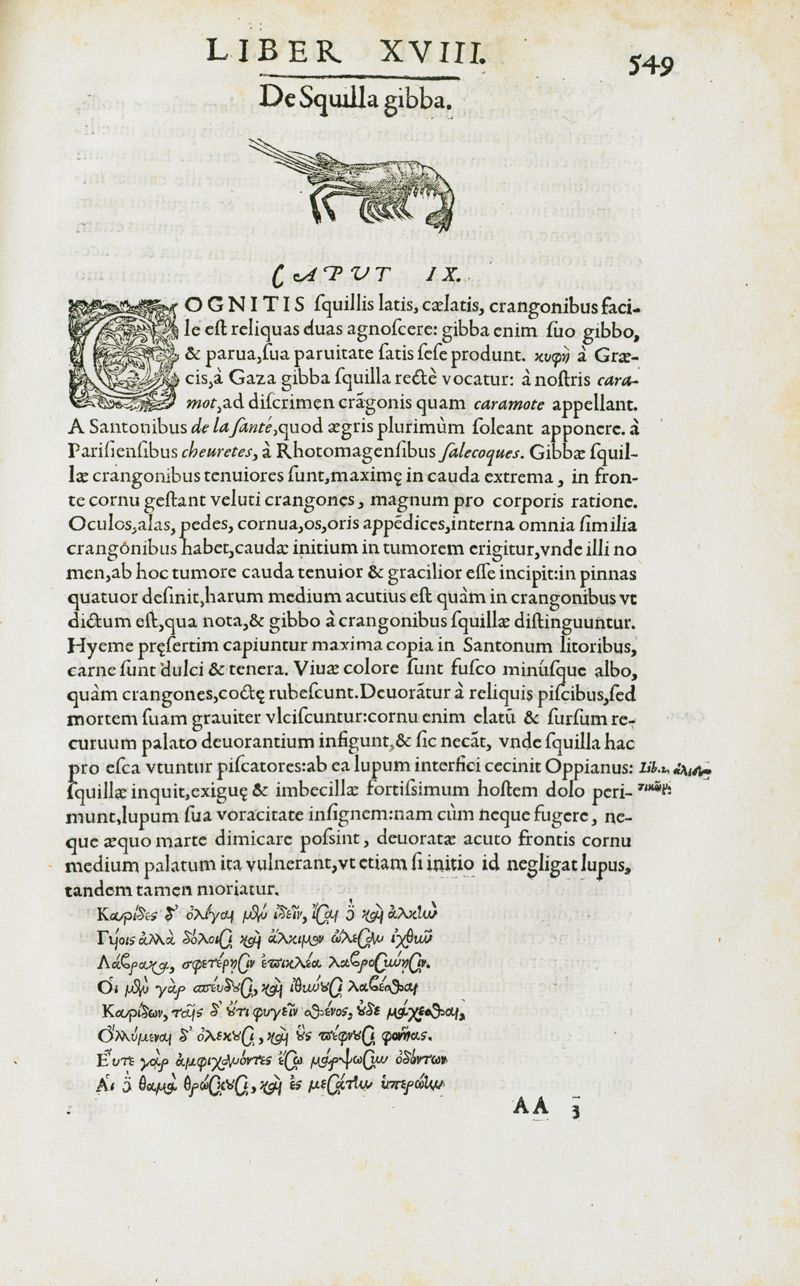 LIBER XVIII. 549
De Squilla gibba.
CAPUT IX.
COGNITIS ſquillis latis, cælatis, crangonibus faci-
le eſt reliquas duas agnoſcere: gibba enim ſuo gibbo,
& parua,ſua paruitate ſatis ſeſe produnt. κυφὴ à Græ-
cis,à Gaza gibba ſquilla rectè vocatur: à noſtris cara-
mot,ad diſcrimen crãgonis quam caramote appellant.
A Santonibus de la ſanté,quod ægris plurimùm ſoleant apponere. à
Pariſienſibus cheuretes, à Rhotomagenſibus ſalecoques. Gibbæ ſquil-
læ crangonibus tenuiores ſunt,maximę in cauda extrema, in fron-
te cornu geſtant veluti crangones, magnum pro corporis ratione.
Oculos,alas, pedes, cornua,os,oris appẽdices,interna omnia ſimilia
crangonibus habet,caudæ initium in tumorem erigitur,vnde illi no
men,ab hoc tumore cauda tenuior & gracilior eſſe incipit:in pinnas
quatuor deſinit,harum medium acutius eſt quàm in crangonibus vt
dictum eſt,qua nota,& gibbo à crangonibus ſquillæ diſtinguuntur.
Hyeme pręſertim capiuntur maxima copia in Santonum litoribus,
carne ſunt dulci & tenera. Viuæ colore ſunt fuſco minúſque albo,
quàm crangones,coctę rubeſcunt.Deuorãtur à reliquis piſcibus,ſed
mortem ſuam grauiter vlciſcuntur:cornu enim elatũ & ſurſum re-
curuum palato deuorantium infigunt,& ſic necãt, vnde ſquilla hac
pro eſca vtuntur piſcatores:ab ea lupum interfici cecinit Oppianus: Lib.2. ἁλιευ-
ſquillæ inquit,exiguę & imbecillæ fortiſsimum hoſtem dolo peri- τικῶν:
munt,lupum ſua voracitate inſignem:nam cùm neque fugere, ne-
que æquo marte dimicare poſsint, deuoratæ acuto frontis cornu
medium palatum ita vulnerant,vt etiam ſi initio id negligat lupus,
tandem tamen moriatur.
Καρίδες δ' ὀλίγαι μὲν ἰδεῖν, ἴσαι ὃ καὶ ἀλκὴν
Γυίοις ἀλλὰ δόλοισι καὶ ἄλκιμον ὤλεσαν ἰχθῦν
Λάβρακα, σφετέρῃσιν ἐπικλέα λαβροσύνῃσιν.
Οἱ μὲν γὰρ σπεύδουσι, καὶ ἰθύουσι λαβέσθαι
Καρίδων, ταῖς δ' οὔτι φυγεῖν σθένος, οὐδὲ μάχεσθαι,
Ὀλλύμεναι δ' ὀλέκουσι, καὶ οὓς πέφνουσι φονῆας.
Εὖτε γὰρ ἀμφιχανόντες ἔσω μάρψωσιν ὀδόντων
Αἱ ὃ θαμὰ θρώσκουσι, καὶ ἐς μεσάτην ὑπερῴην
AA 3